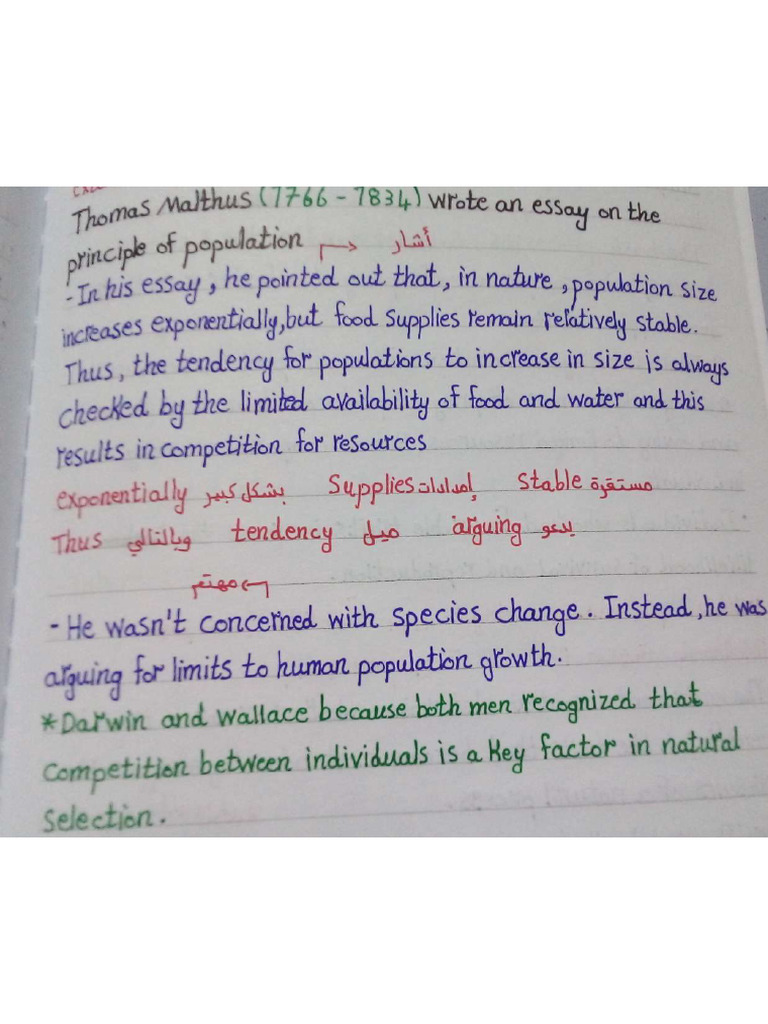 Thomas Malthus (1766 - 1834) wrote an essay on the
principle of population أشار
- In his essay, he pointed out that, in nature, population size
increases exponentially, but food supplies remain relatively stable.
Thus, the tendency for populations to increase in size is always
checked by the limited availability of food and water and this
results in competition for resources
exponentially بشكل كبير Supplies إمدادات Stable مستقرة
Thus وبالتالي tendency ميل arguing يدعو
مهتم
- He wasn't concerned with species change. Instead, he was
arguing for limits to human population growth.
* Darwin and Wallace because both men recognized that
Competition between individuals is a Key factor in natural
Selection.